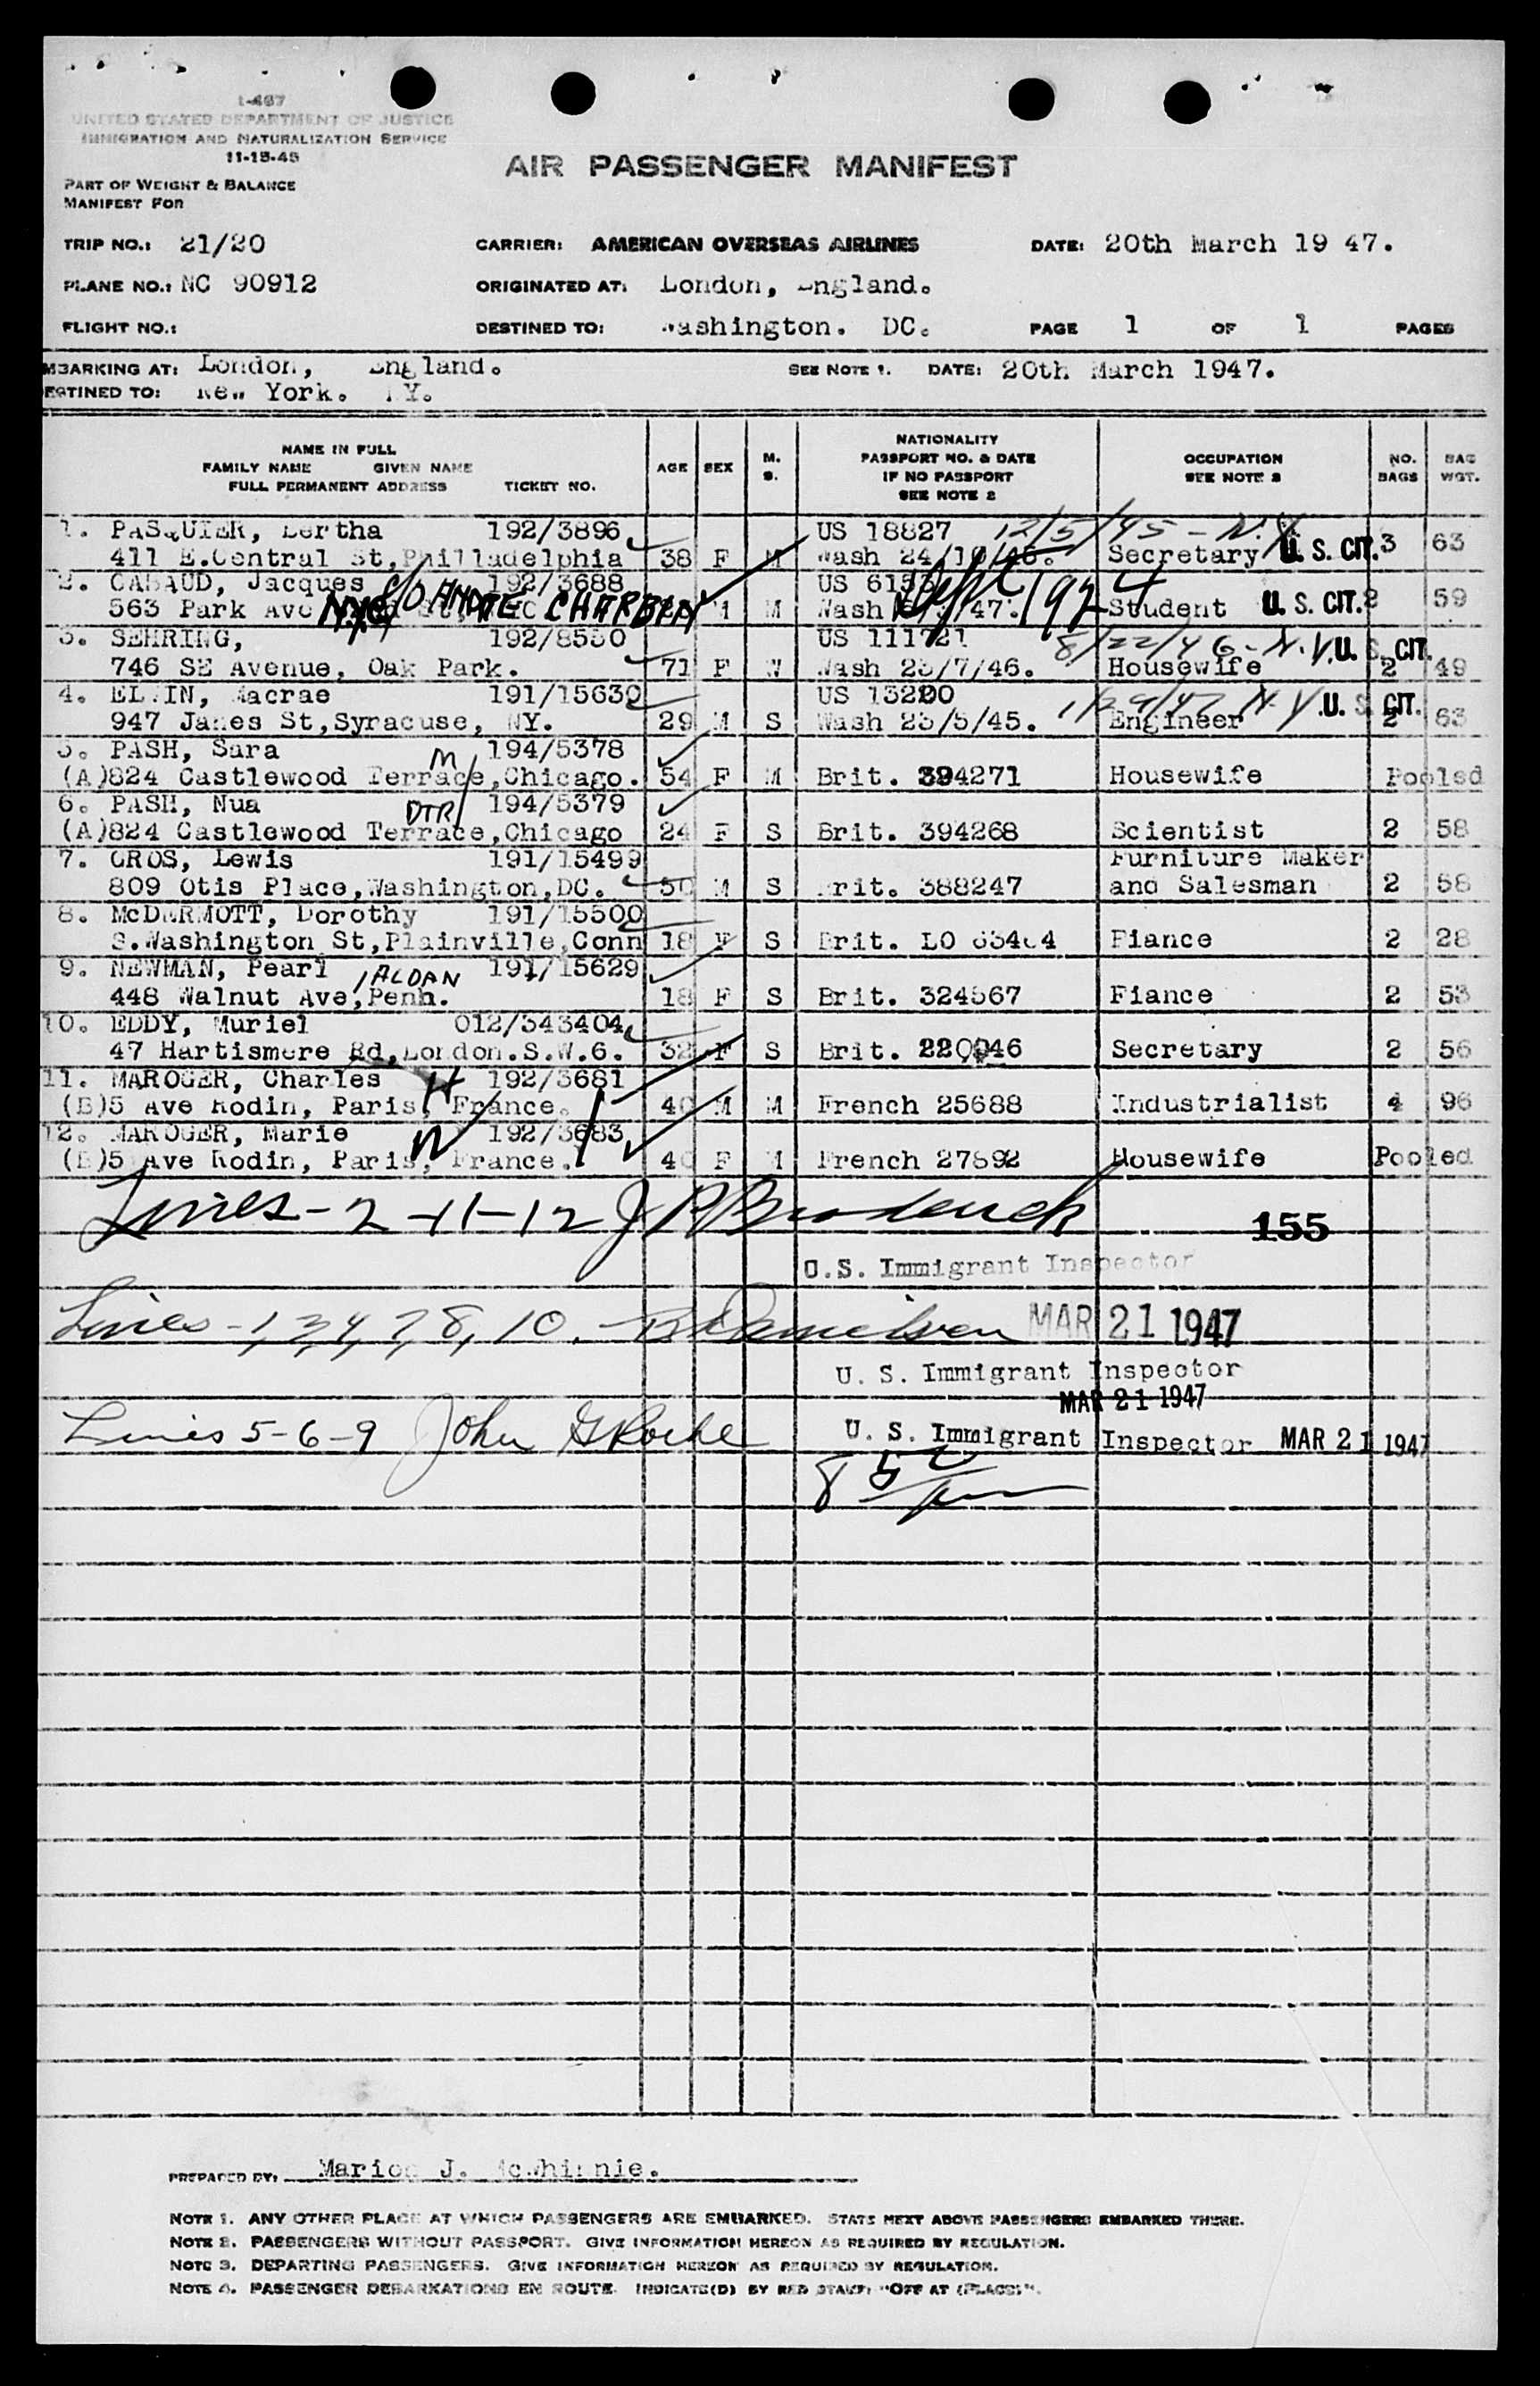 I-467
UNITED STATES DEPARTMENT OF JUSTICE
IMMIGRATION AND NATURALIZATION SERVICE
11-15-45
AIR PASSENGER MANIFEST
PART OF WEIGHT & BALANCE
MANIFEST FOR
TRIP NO.: 21/20 CARRIER: AMERICAN OVERSEAS AIRLINES DATE: 20th March 19 47.
PLANE NO.: NC 90912 ORIGINATED AT: London, England.
FLIGHT NO.: DESTINED TO: Washington. DC. PAGE 1 OF 1 PAGES
MBARKING AT: London, England. SEE NOTE 1. DATE: 20th March 1947.
ESTINED TO: New York. NY.
NAME IN FULL
FAMILY NAME GIVEN NAME
FULL PERMANENT ADDRESS TICKET NO. AGE SEX M. S. NATIONALITY PASSPORT NO. & DATE IF NO PASSPORT SEE NOTE 2 OCCUPATION SEE NOTE 3 NO. BAGS BAG WGT.
1. PASQUIER, Bertha 192/3896 US 18827 12/5/45 - N.Y.
411 E.Central St,Philladelphia 38 F M Wash 24/10/45. Secretary U. S. CIT. 3 63
2. CABAUD, Jacques c/o 192/3688 US Sept 1924
563 Park Ave N.Y.C. M M Wash /47. Student U. S. CIT. 2 59
3. SEHRING, 192/8550 US 111721 8/22/46 - N.Y. U. S. CIT.
746 SE Avenue, Oak Park. 71 F W Wash 23/7/46. Housewife 2 49
4. ELWIN, Macrae 191/15630 US 13200 N.Y. U. S. CIT.
947 James St,Syracuse, NY. 29 M S Wash 23/5/45. Engineer 2 63
5. PASH, Sara M 194/5378
(A)824 Castlewood Terrace,Chicago. 54 F M Brit. 394271 Housewife Pooled
6. PASH, Nua DTR 194/5379
(A)824 Castlewood Terrace,Chicago 24 F S Brit. 394268 Scientist 2 58
7. GROS, Lewis 191/15499 Furniture Maker
809 Otis Place,Washington,DC. 50 M S Brit. 388247 and Salesman 2 58
8. McDERMOTT, Dorothy 191/15500
S.Washington St,Plainville,Conn 18 F S Brit. LO Fiance 2 28
9. NEWMAN, Pearl ALDAN 191/15629
448 Walnut Ave,Penn. 18 F S Brit. 324567 Fiance 2 53
10. EDDY, Muriel 012/343404
47 Hartismere Rd,London.S.W.6. 32 F S Brit. 220046 Secretary 2 56
11. MAROGER, Charles H 192/3681
(B)5 Ave Rodin, Paris, France. 40 M M French 25688 Industrialist 4 96
12. MAROGER, Marie W 192/3683
(B)5 Ave Rodin, Paris, France. 40 F M French 27892 Housewife Pooled
Lines - 2 - 11 - 12 J P Broderick 155
U.S. Immigrant Inspector
Lines - 1, 3, 4, 7, 8, 10. MAR 21 1947
U. S. Immigrant Inspector
MAR 21 1947
Lines 5-6-9 John G Roche U. S. Immigrant Inspector MAR 21 1947
8 50
PREPARED BY: Marion J. McWhinnie.
NOTE 1. ANY OTHER PLACE AT WHICH PASSENGERS ARE EMBARKED. STATE NEXT ABOVE PASSENGERS EMBARKED THERE.
NOTE 2. PASSENGERS WITHOUT PASSPORT. GIVE INFORMATION HEREON AS REQUIRED BY REGULATION.
NOTE 3. DEPARTING PASSENGERS. GIVE INFORMATION HEREON AS REQUIRED BY REGULATION.
NOTE 4. PASSENGER DEBARKATIONS EN ROUTE. INDICATE(D) BY RED STAMP: "OFF AT (PLACE)".